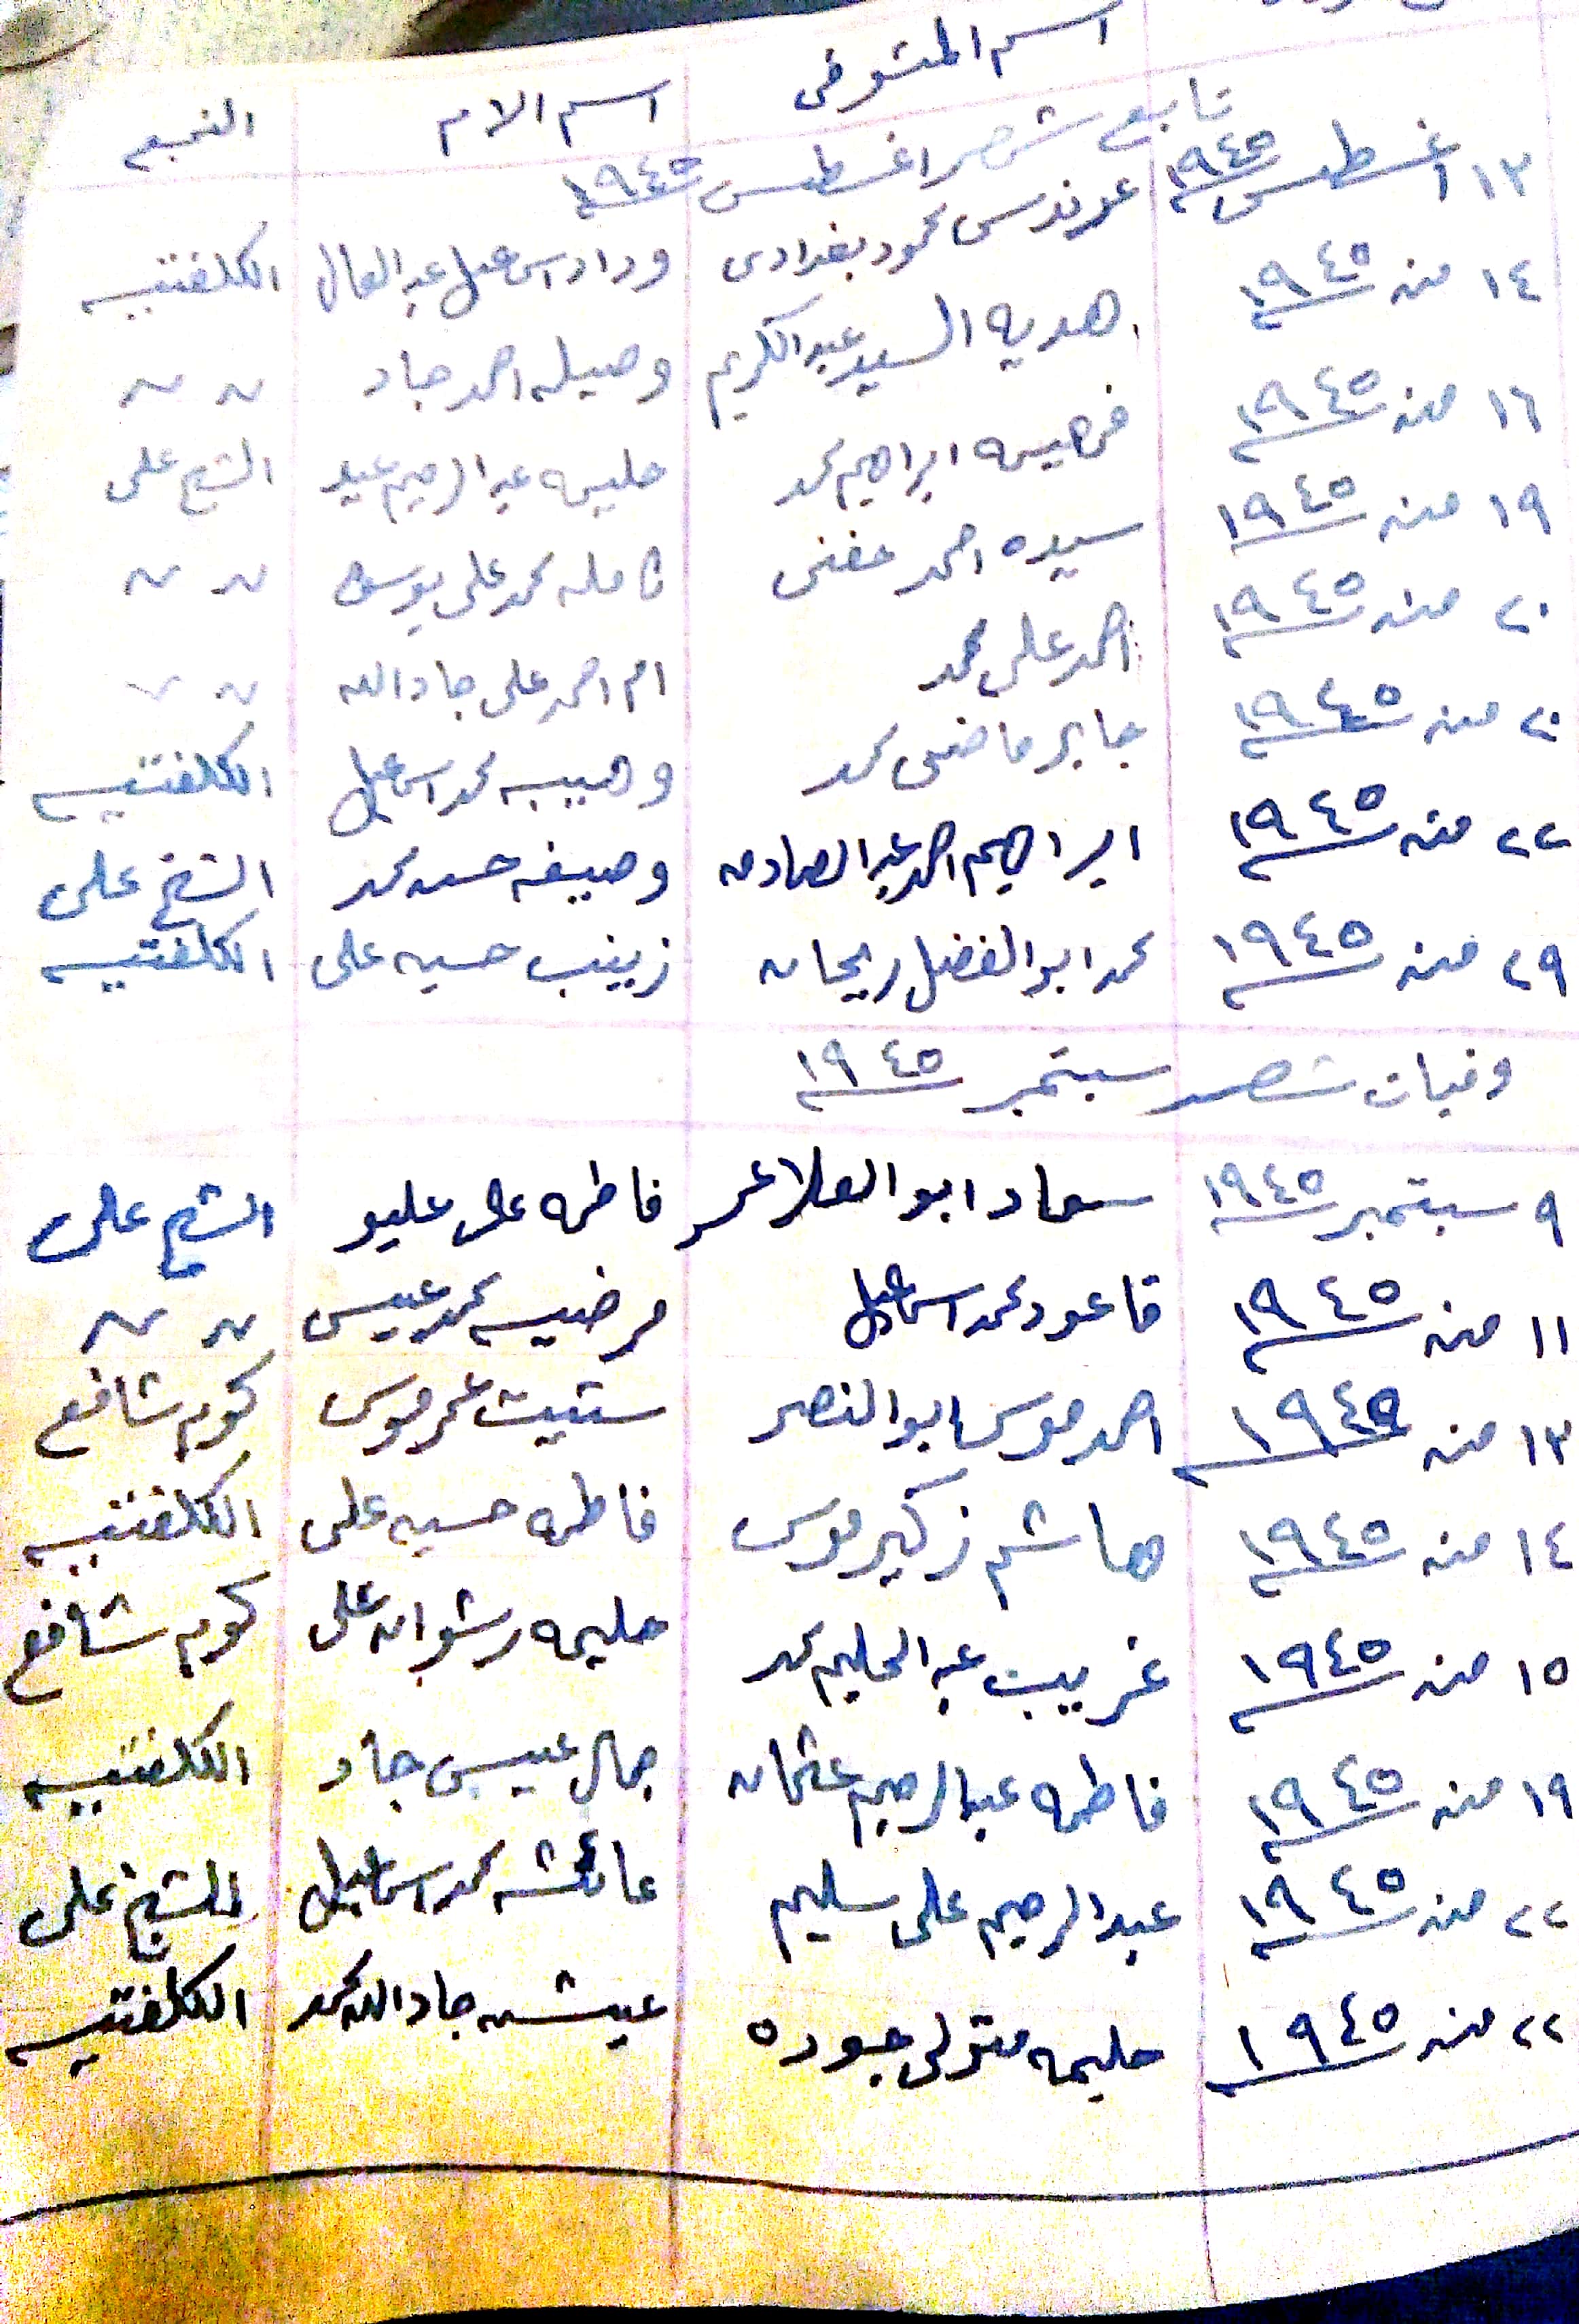 اسم المتوفى اسم الام النجع
تابع شهر اغسطس ١٩٤٥
١٣ اغسطس ١٩٤٥ محمود بغدادى وداد اسماعيل عبد العال الكلفتيه
١٤ منه ١٩٤٥ هديه السيد عبد الكريم وصيله احمد جاد 〃 〃
١٦ منه ١٩٤٥ فهيمه ابراهيم محمد حليمه عبد الرحيم عبيد الشيخ على
١٩ منه ١٩٤٥ سيده احمد حفنى كامله محمد على يوسف 〃 〃
٢٠ منه ١٩٤٥ احمد على محمد ام احمد على جاد الله 〃 〃
٢٠ منه ١٩٤٥ جابر ماضى محمد وهيبه محمد اسماعيل الكلفتيه
٢٢ منه ١٩٤٥ ابراهيم احمد عبد الصادق وصيفه حسن محمد الشيخ على
٢٩ منه ١٩٤٥ محمد ابو الفضل ريحان زينب حسين على الكلفتيه
وفيات شهر سبتمبر ١٩٤٥
٩ سبتمبر ١٩٤٥ سعاد ابو العلا عمر فاطمه على عليو الشيخ على
١١ منه ١٩٤٥ قاعود محمد اسماعيل مرضيه محمد عيسى 〃 〃
١٣ منه ١٩٤٥ احمد موسى ابو النصر ستيت عمر موسى كوم شافع
١٤ منه ١٩٤٥ هاشم زكير موسى فاطمه حسين على الكلفتيه
١٥ منه ١٩٤٥ غريب عبد الحليم محمد حليمه رشوان على كوم شافع
١٩ منه ١٩٤٥ فاطمه عبد الرحيم عثمان جمال عيسى جاد الكلفتيه
٢٢ منه ١٩٤٥ عبد الرحيم على سليم عائشه محمد اسماعيل الشيخ على
٢٢ منه ١٩٤٥ حليمه متولى جوده عيشه جاد الله محمد الكلفتيه